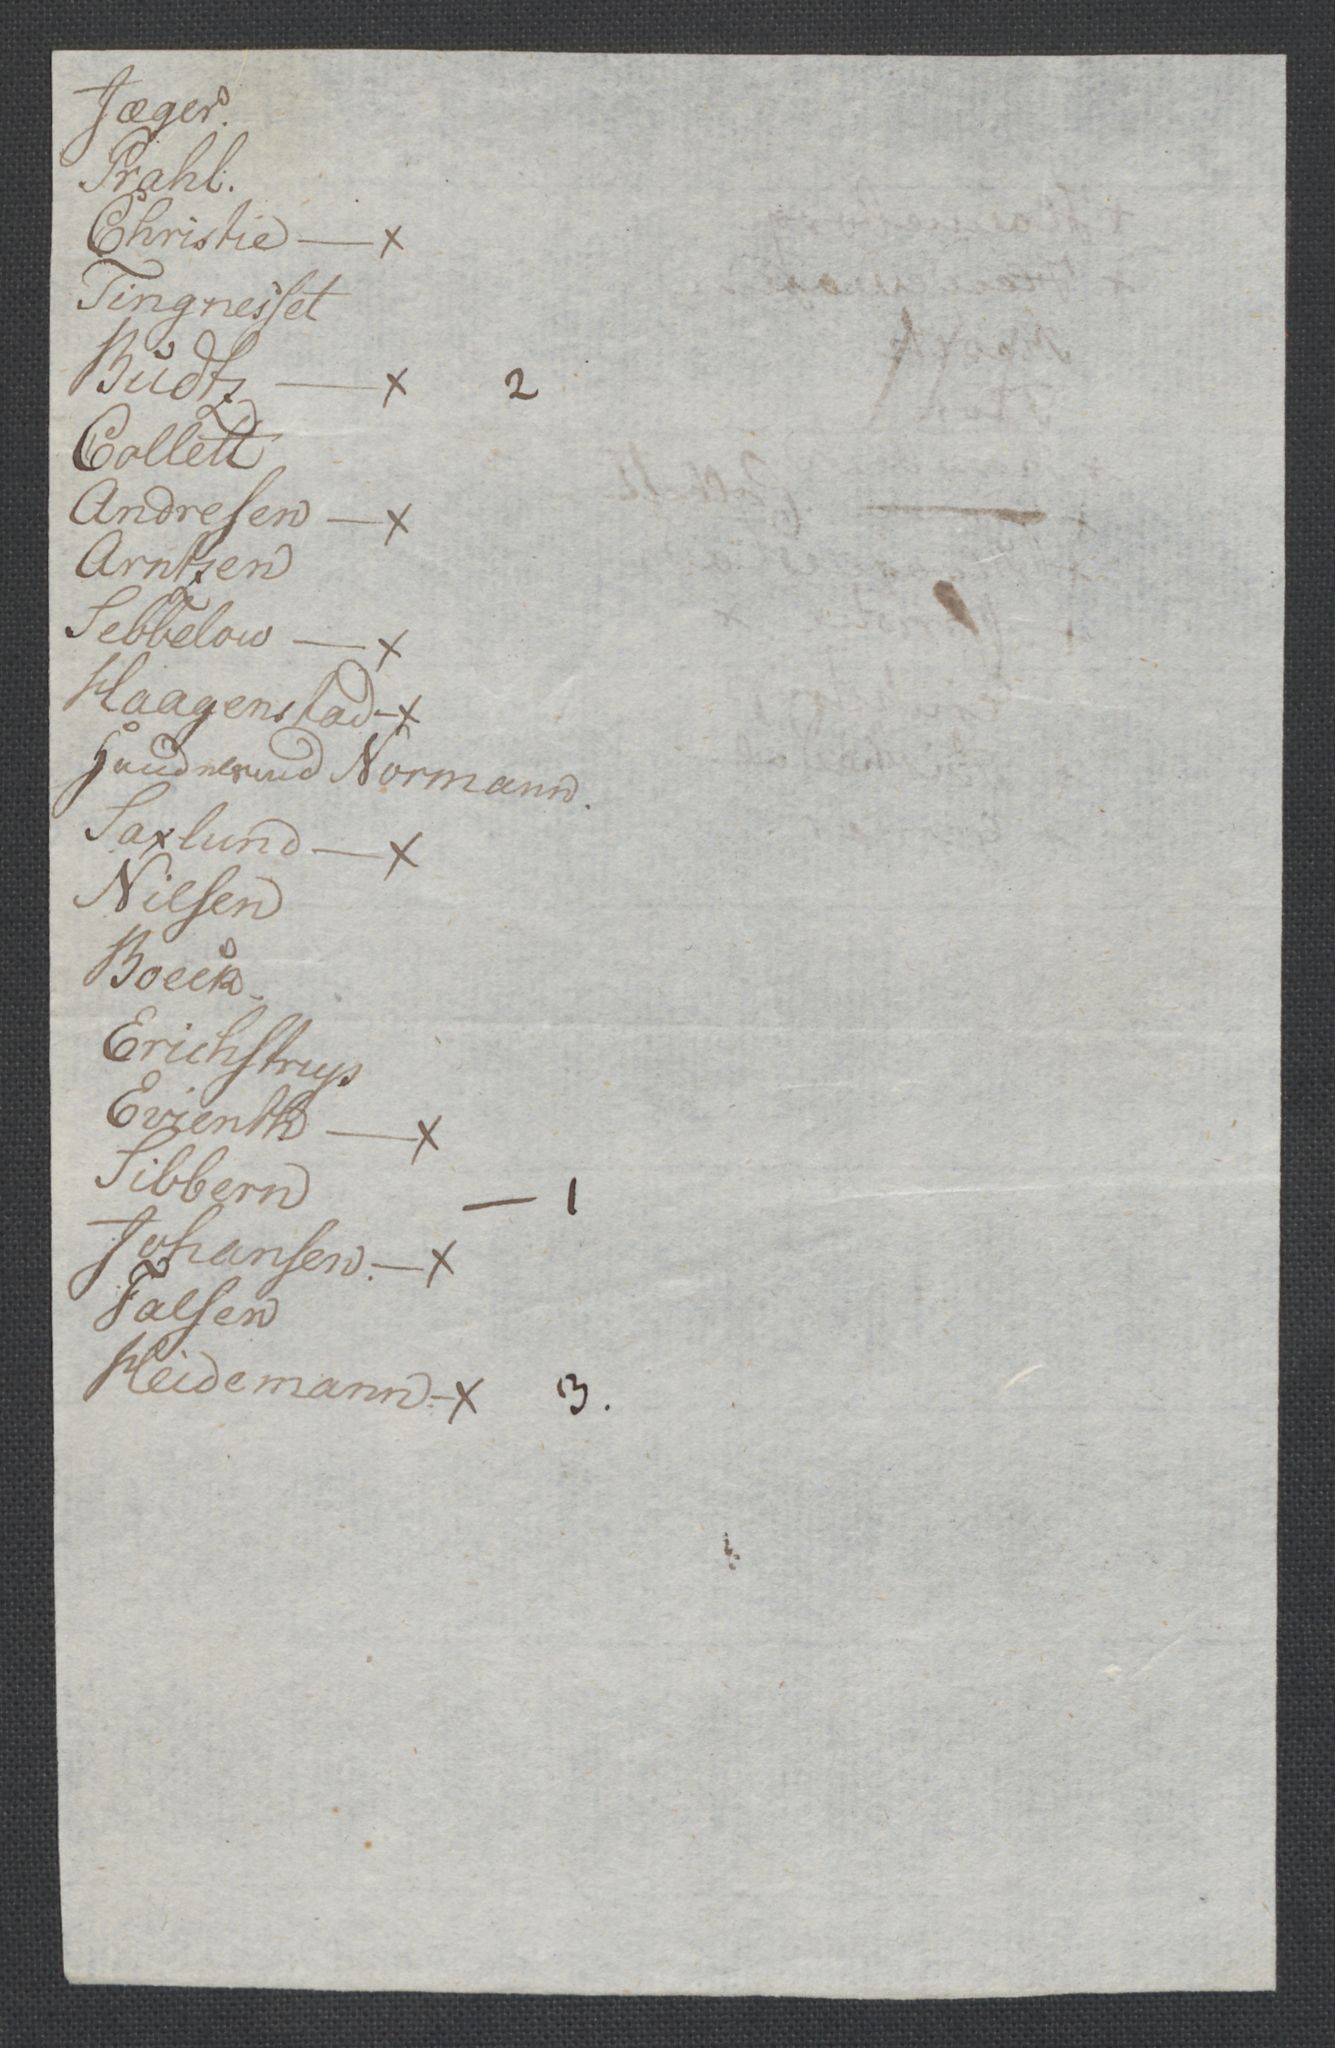 Jæger.
Prahl.
Christie — x
Tingnesset
Büdtz — x 2
Collett
Andresen — x
Arntzen
Sebbelow — x
Haagenstad — x
Normann.
Saxlund — x
Nilsen
Boeck
Erichstrup
Evienth — x
Sibbern — 1
Johansen. — x
Falsen
Heidemann — x 3.